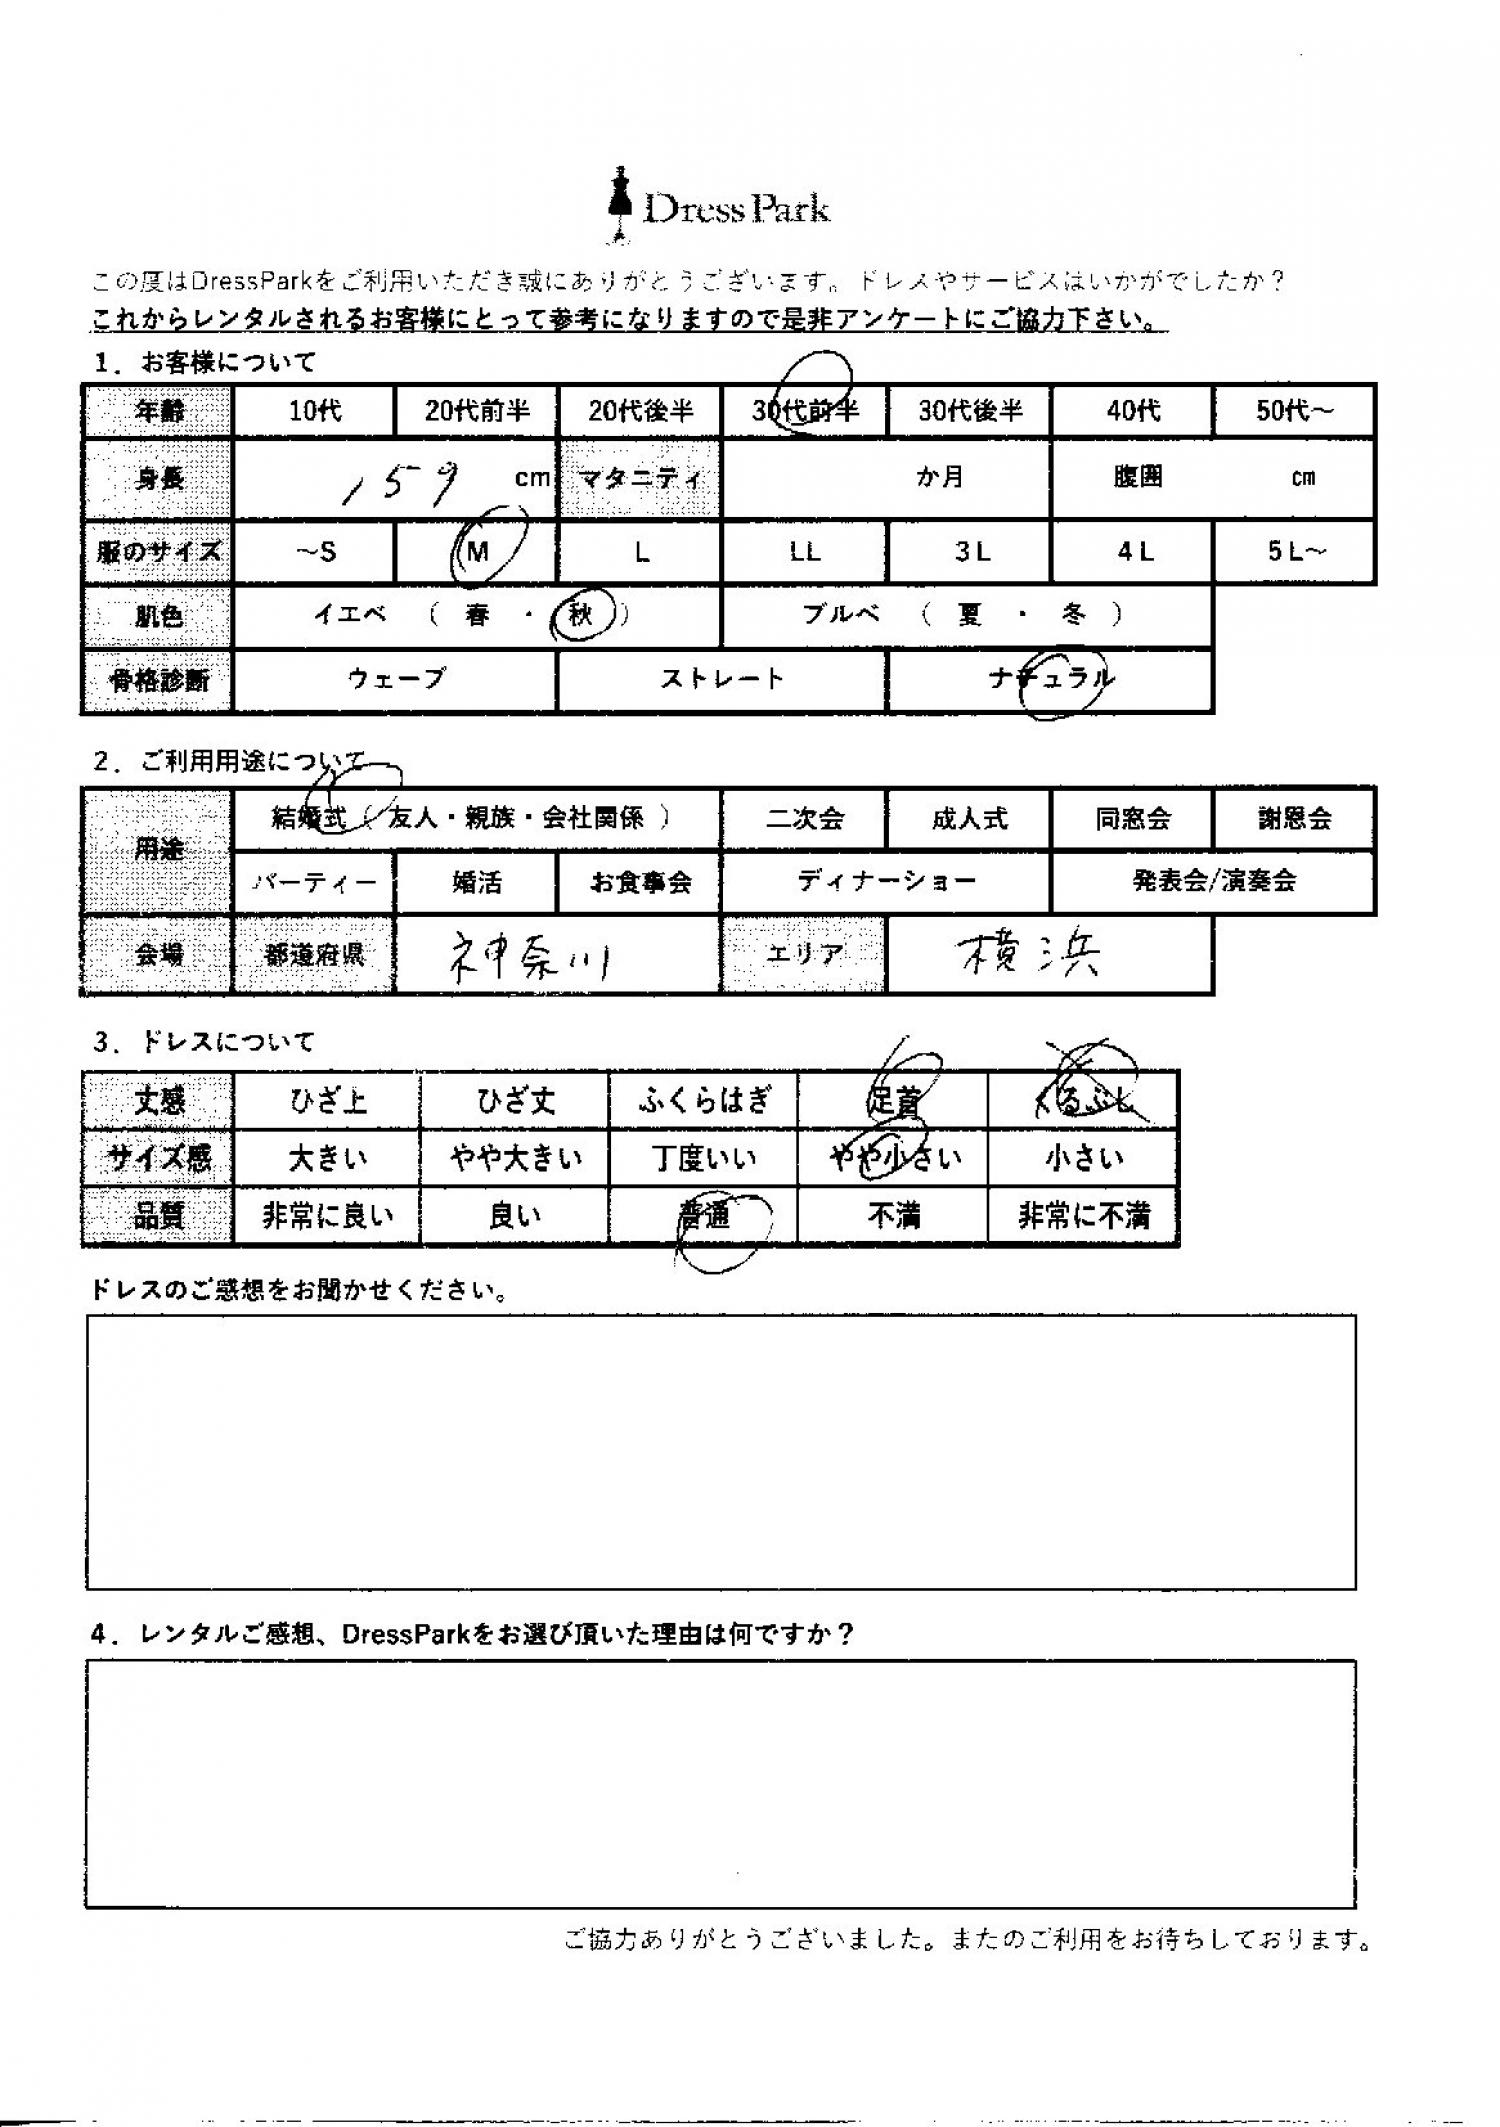 Dress Park
この度はDressParkをご利用いただき誠にありがとうございます。ドレスやサービスはいかがでしたか？
これからレンタルされるお客様にとって参考になりますので是非アンケートにご協力下さい。
1．お客様について
年齢 10代 20代前半 20代後半 30代前半 30代後半 40代 50代～
身長 159 cm マタニティ か月 腹囲 cm
服のサイズ ～S M L LL 3L 4L 5L～
肌色 イエベ （ 春 ・ 秋 ） ブルベ （ 夏 ・ 冬 ）
骨格診断 ウェーブ ストレート ナチュラル
2．ご利用用途について
用途 結婚式（ 友人・親族・会社関係 ） 二次会 成人式 同窓会 謝恩会
パーティー 婚活 お食事会 ディナーショー 発表会/演奏会
会場 都道府県 神奈川 エリア 横浜
3．ドレスについて
丈感 ひざ上 ひざ丈 ふくらはぎ 足首 くるぶし
サイズ感 大きい やや大きい 丁度いい やや小さい 小さい
品質 非常に良い 良い 普通 不満 非常に不満
ドレスのご感想をお聞かせください。
4．レンタルご感想、DressParkをお選び頂いた理由は何ですか？
ご協力ありがとうございました。またのご利用をお待ちしております。